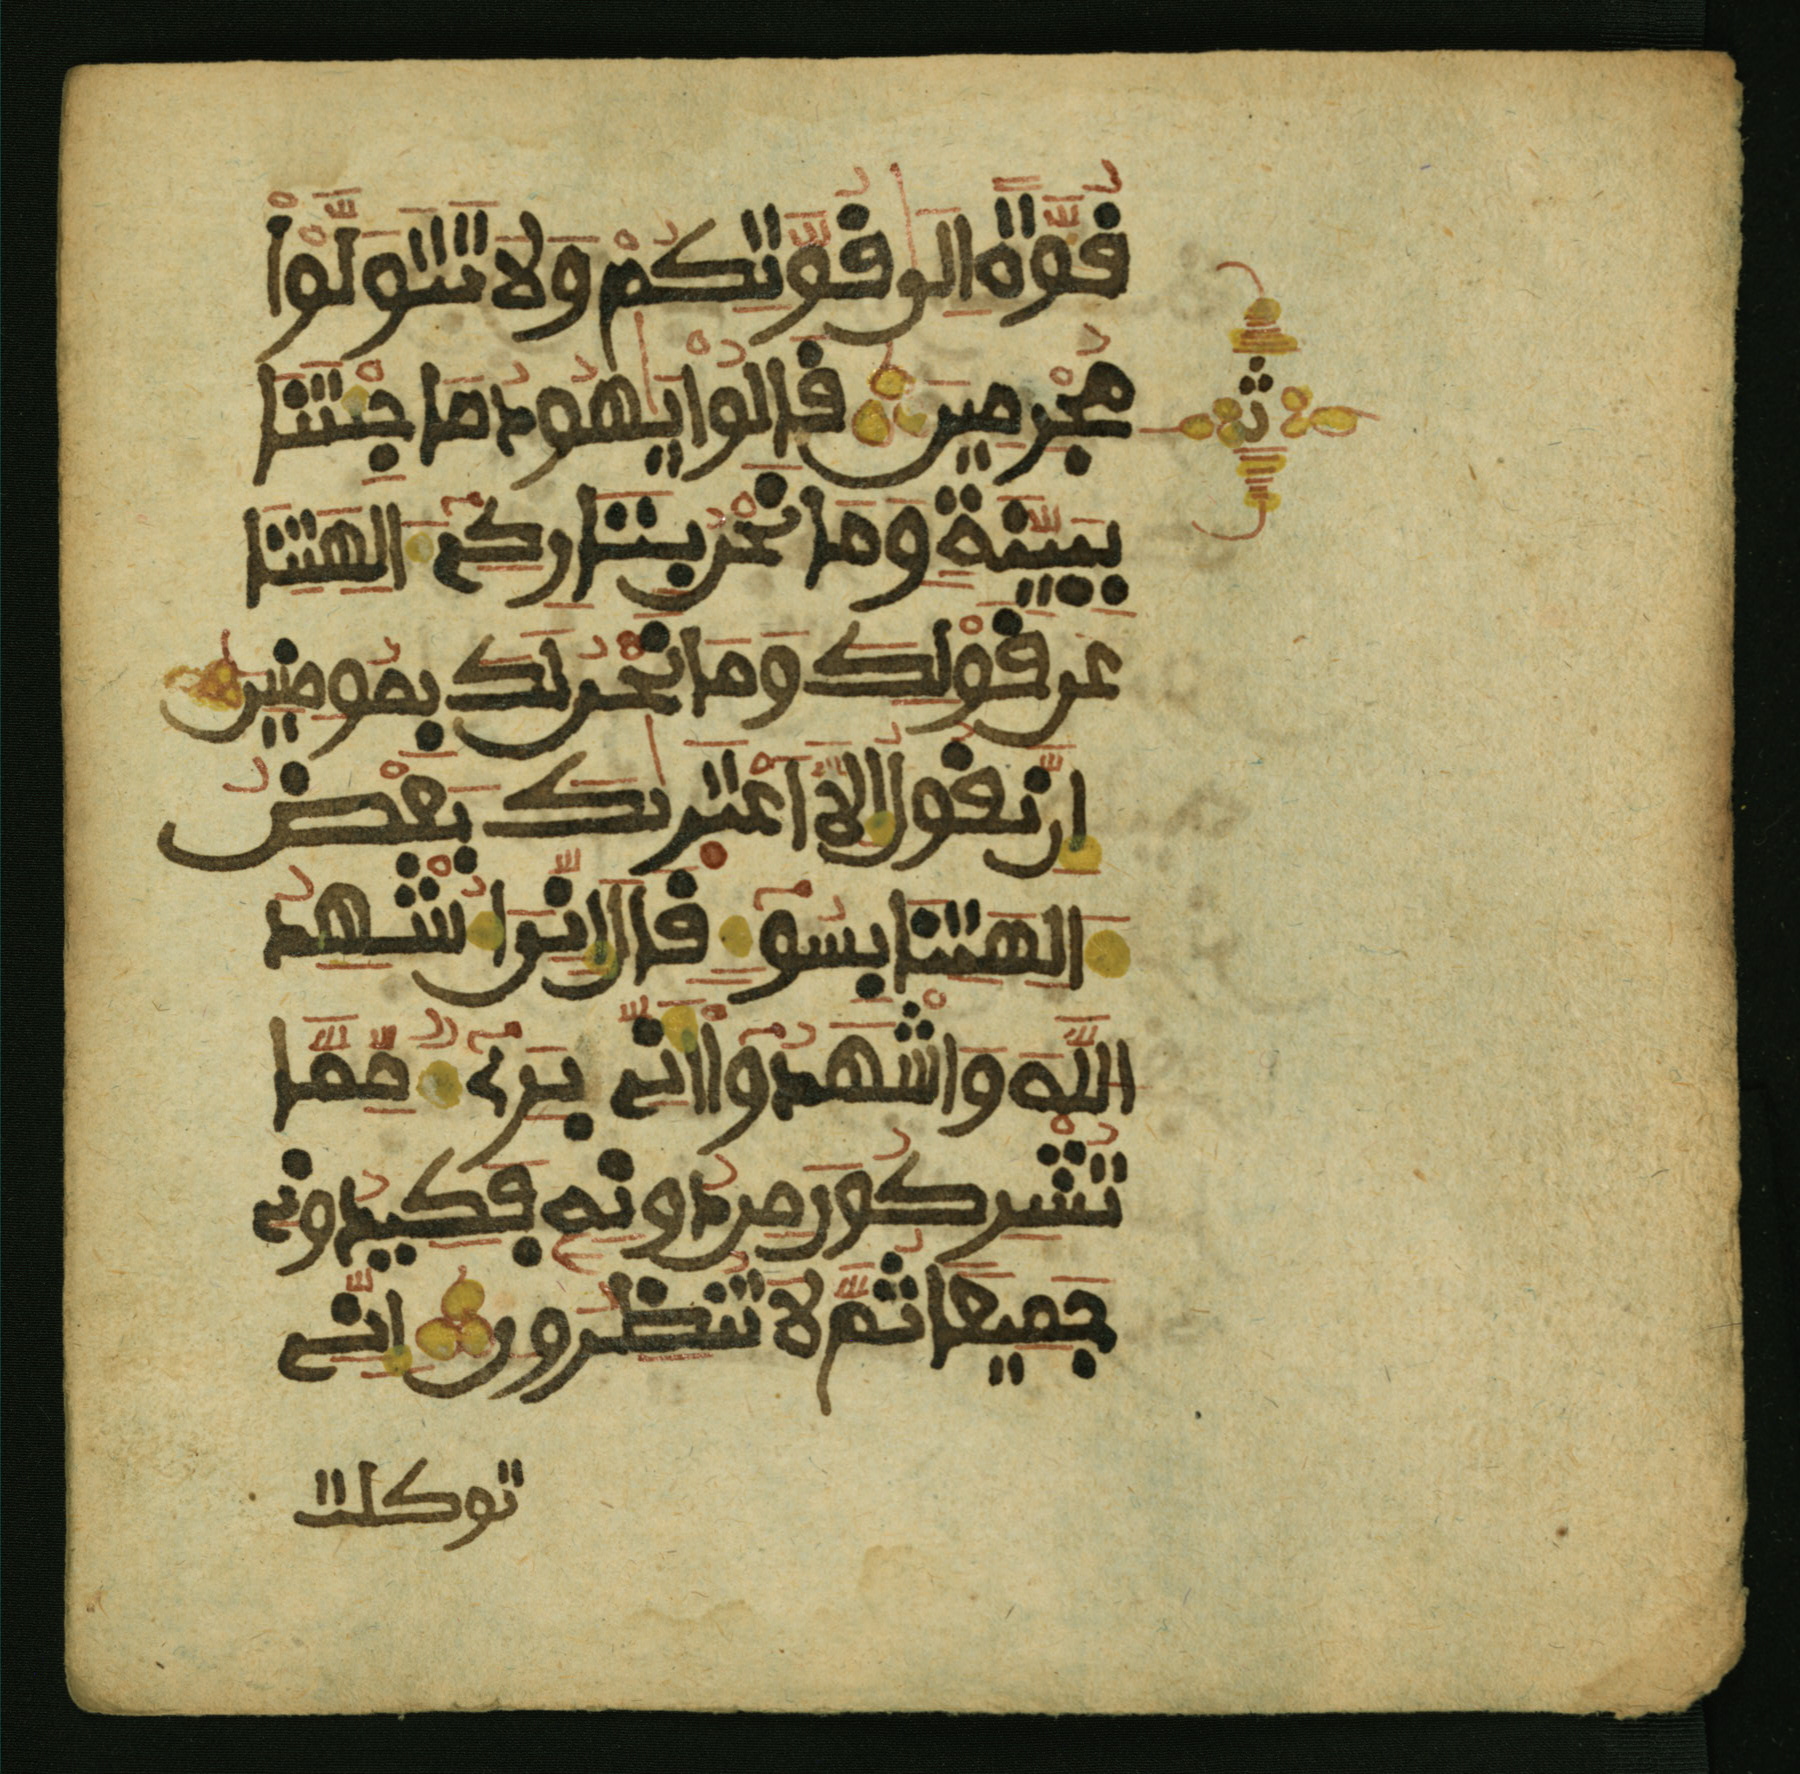 قُوَّةً اِلَى قُوَّتِكُمْ وَلَا تَتَوَلَّوْا
مُجْرِمِينَ قَالُوا يَهُودُ مَا جِئْتَنَا
بِبَيِّنَةٍ وَمَا نَحْنُ بِتَارِكِي الِهَتِنَا
عَن قَوْلِكَ وَمَا نَحْنُ لَكَ بِمُومِنِينَ
اِن نَّقُولُ اِلَّا اَعْتَرَىكَ بَعْضُ
الِهَتِنَا بِسُوءٍ قَالَ اِنِّيَ أُشْهِدُ
اللَّهَ وَاشْهَدُوا اَنِّي بَرِيءٌ مِّمَّا
تُشْرِكُونَ مِن دُونِهِ فَكِيدُونِي
جَمِيعًا ثُمَّ لَا تُنظِرُونِ اِنِّي
توكلت
ث